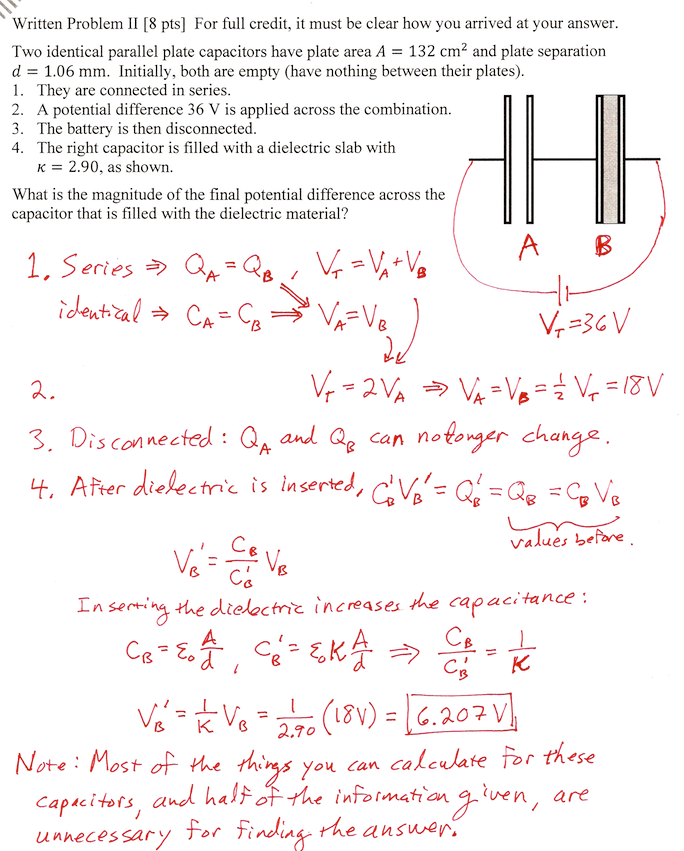 Written Problem II [8 pts] For full credit, it must be clear how you arrived at your answer.
Two identical parallel plate capacitors have plate area A = 132 cm² and plate separation
d = 1.06 mm. Initially, both are empty (have nothing between their plates).
1. They are connected in series.
2. A potential difference 36 V is applied across the combination.
3. The battery is then disconnected.
4. The right capacitor is filled with a dielectric slab with
κ = 2.90, as shown.
What is the magnitude of the final potential difference across the
capacitor that is filled with the dielectric material?
A B
V_T = 36 V
1. Series ⇒ Q_A = Q_B , V_T = V_A + V_B
identical ⇒ C_A = C_B ⇒ V_A = V_B
2. V_T = 2V_A ⇒ V_A = V_B = 1/2 V_T = 18V
3. Disconnected : Q_A and Q_B can no longer change.
4. After dielectric is inserted, C_B' V_B' = Q_B' = Q_B = C_B V_B
values before.
V_B' = C_B/C_B' V_B
Inserting the dielectric increases the capacitance :
C_B = ε₀ A/d , C_B' = ε₀ K A/d ⇒ C_B/C_B' = 1/K
V_B' = 1/K V_B = 1/2.90 (18V) = 6.207 V
Note : Most of the things you can calculate for these
capacitors, and half of the information given, are
unnecessary for finding the answer.